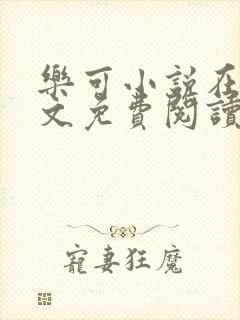 樂可小說在
文免費閱讀
寵妻狂魔